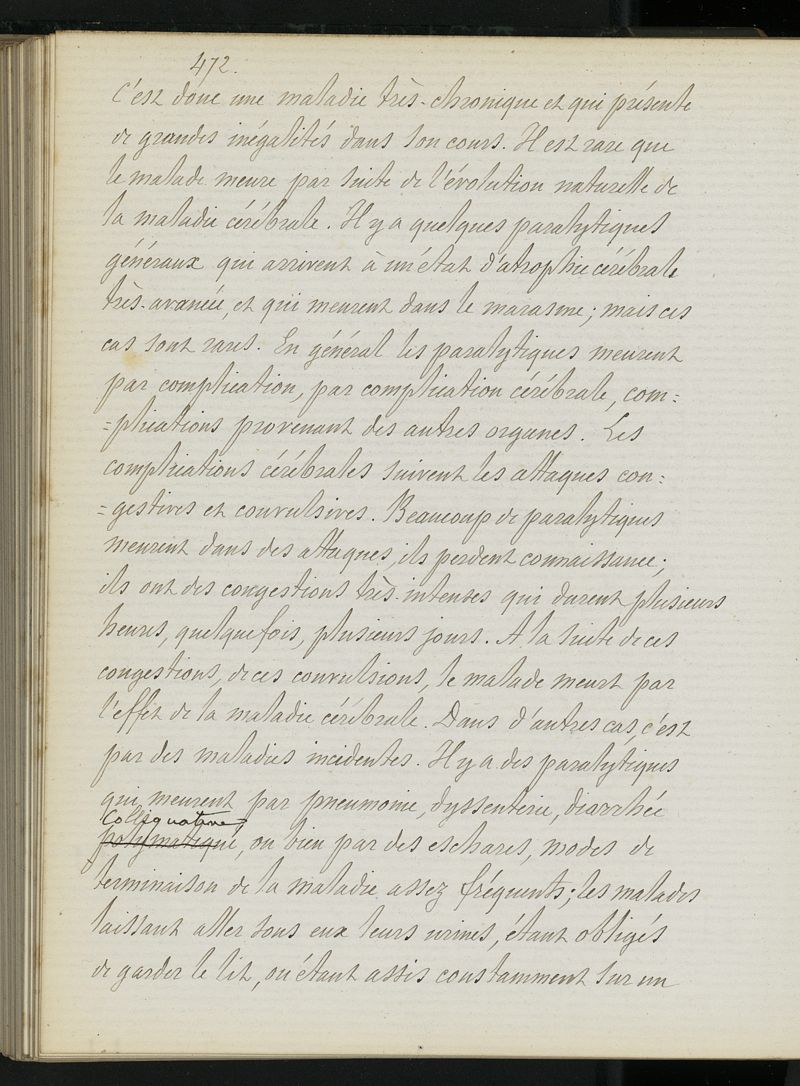 472.
C'est donc une maladie très-chronique et qui présente
de grandes inégalités dans son cours. Il est rare que
le malade meure par suite de l'évolution naturelle de
la maladie cérébrale. Il y a quelques paralytiques
généraux qui arrivent à un état d'atrophie cérébrale
très-avancée, et qui meurent dans le marasme; mais ces
cas sont rares. En général les paralytiques meurent
par complication, par complication cérébrale, com=
=plications provenant des autres organes. Les
complications cérébrales suivent les attaques con=
=gestives et convulsives. Beaucoup de paralytiques
meurent dans des attaques, ils perdent connaissance;
ils ont des congestions très-intenses qui durent plusieurs
heures, quelquefois, plusieurs jours. A la suite de ces
congestions, de ces convulsions, le malade meurt par
l'effet de la maladie cérébrale. Dans d'autres cas, c'est
par des maladies incidentes. Il y a des paralytiques
qui meurent par pneumonie, dyssenterie, diarrhée
Colliquative
polymatique, ou bien par des eschares, modes de
terminaison de la maladie assez fréquents; les malades
laissant aller sous eux leurs urines, étant obligés
de garder le lit, ou étant assis constamment sur un